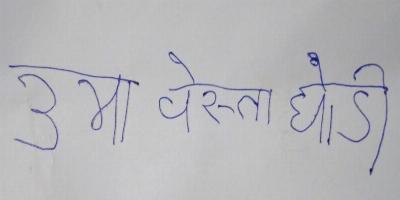 उमा वेस्ता घोडी